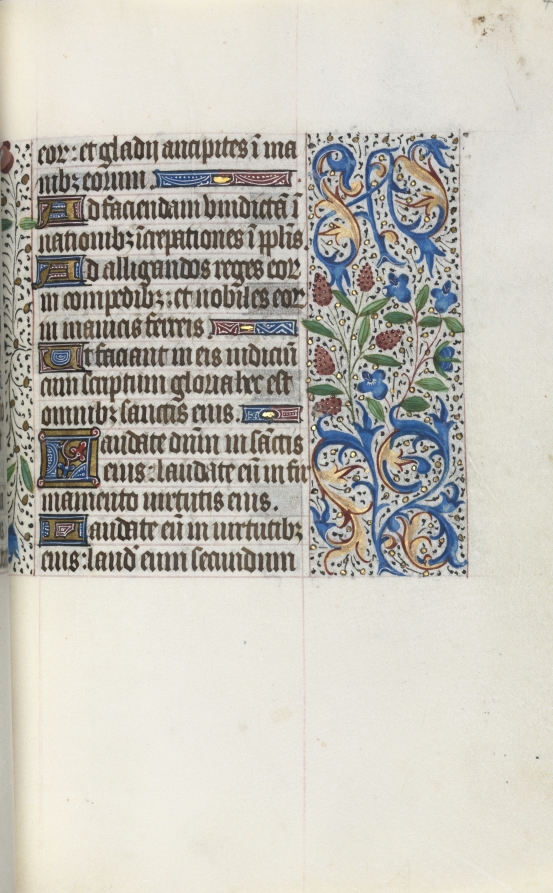 eor: et gladij ancipites ī ma
nibꝫ eorum
Ad faciendam vindictā ī
nationibꝫ īcrepationes ī pplīs.
Ad alligandos reges eoꝝ
in compedibꝫ: et nobiles eoꝝ
in manicis ferreis
Ut faciant in eis iudiciū
cum scriptum gloria hec est
omnibꝫ sanctis eius.
Laudate dnm̄ in sāctis
eius: laudate eū in fir
mamento virtutis eius.
Laudate eū in virtutibꝫ
eius: laud̄ eum secundum